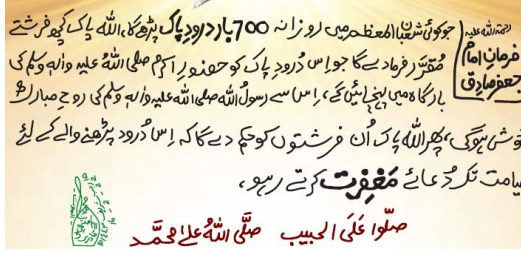 رحمۃ اللہ علیہ
فرمانِ امام
جعفر صادق
جو کوئی شعبان المعظم میں روزانہ 700 بار درودِ پاک پڑھے گا، اللہ پاک کچھ فرشتے
مُقرّر فرما دے گا جو اِس دُرودِ پاک کو حضورِ اکرم صلی اللہ علیہ واٰلہٖ وسلم کی
بارگاہ میں پہنچائیں گے، اِس سے رسولُ اللہ صلی اللہ علیہ واٰلہٖ وسلم کی روحِ مبارک
خوش ہوگی، پھر اللہ پاک اُن فرشتوں کو حکم دے گا کہ اِس دُرود پڑھنے والے کے لئے
قیامت تک دُعائے مَغفِرت کرتے رہو،
صلّوا عَلَی الحبیب صلَّی اللہُ علیٰ محمَّد